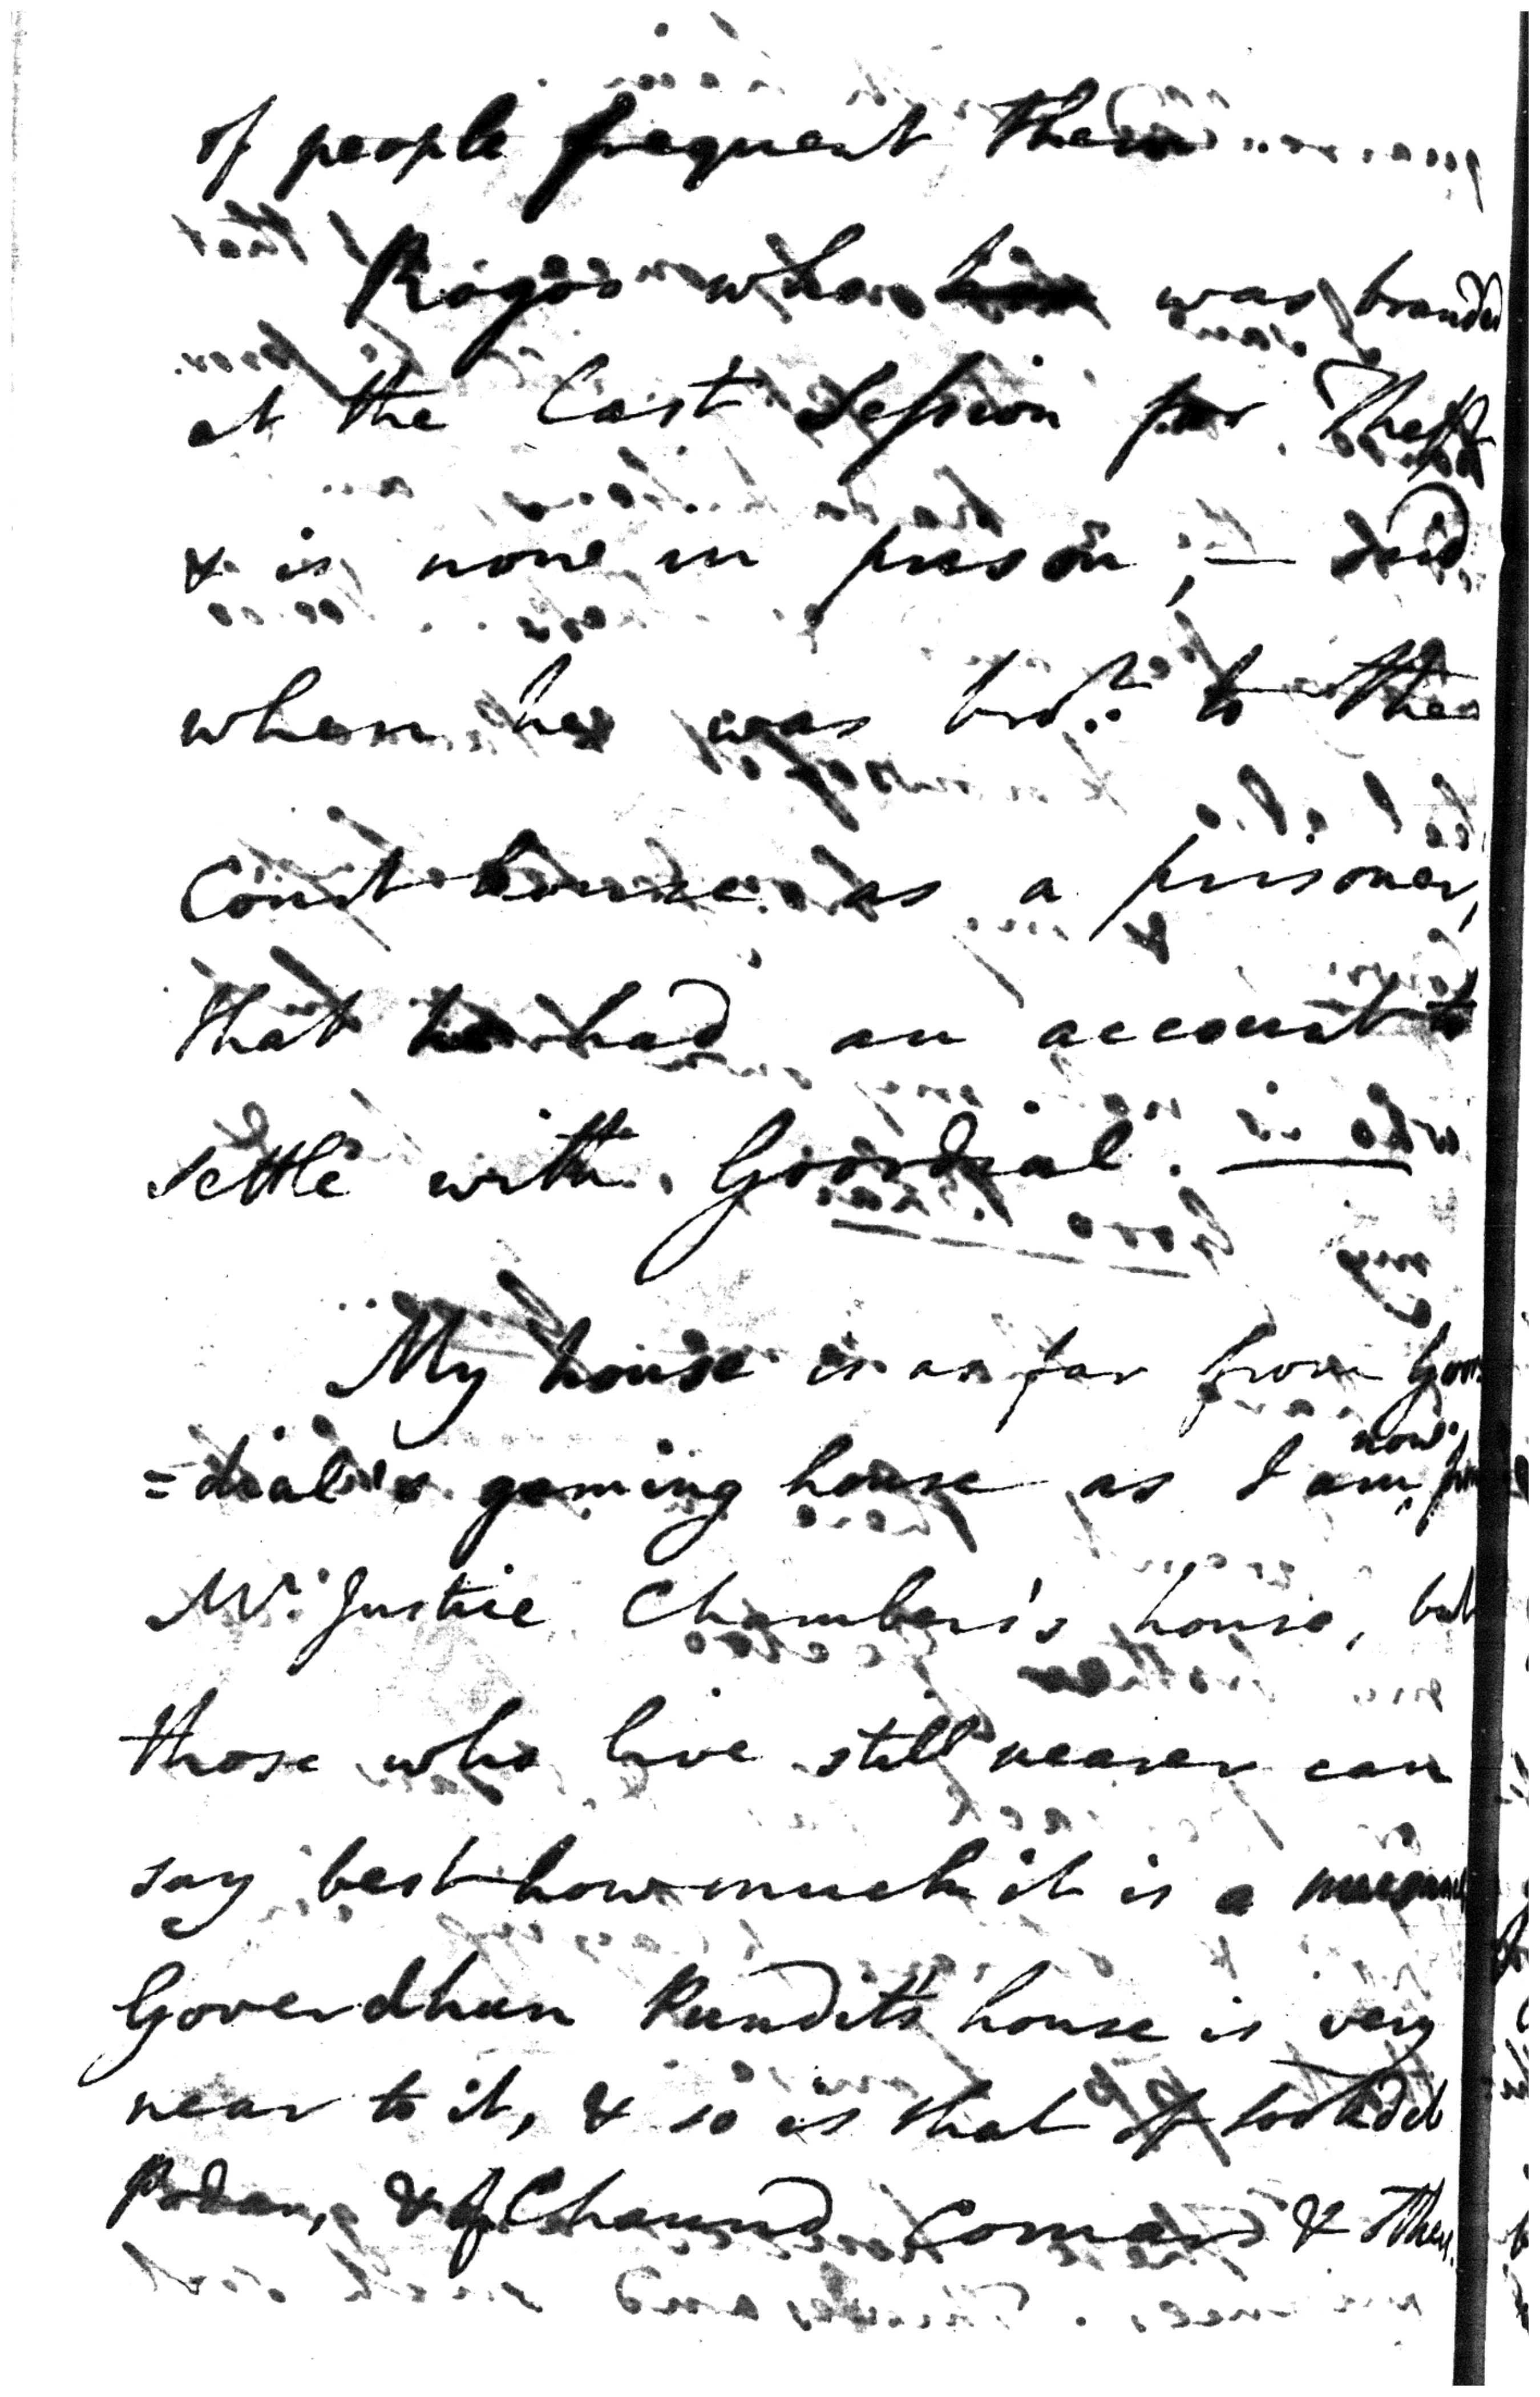 of people frequent them
Rogoo who was branded
at the last Session for Theft
& is none in prison, — said
when he was bro.t to the
Court house as a prisoner,
that he had an account to
settle with Goordial. —
My house is as far from Goor
=dial's gaming house as I am now from
Mr. Justice Chambers's house, but
those who live still nearer can
say best how much it is a nuisance
Goverdhun Pundit's house is very
near to it, & so is that of
Podar, & of Chaund Comar & they